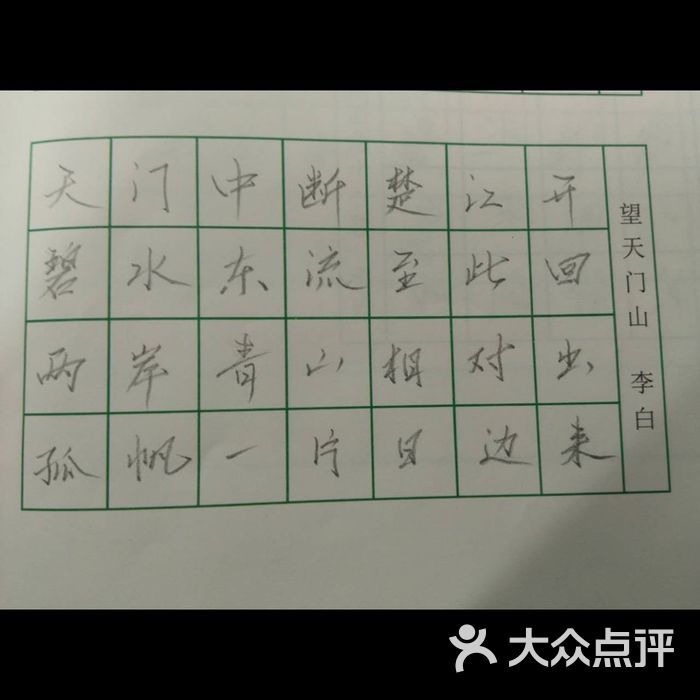 天门中断楚江开
碧水东流至此回
两岸青山相对出
孤帆一片日边来
望天门山 李白
大众点评